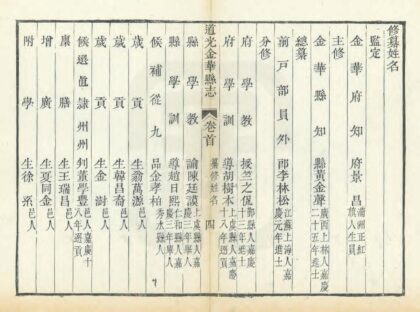 修纂姓名
監定
金華府知府景昌滿洲正紅旗人生員
主修
金華縣知縣黃金聲廣西上林人嘉慶二十五年進士
總纂
前戶部員外郎李林松江蘇上海人嘉慶元年進士
分修
府學教授竺之侃鄞縣人嘉慶十三年進士
府學訓導胡樹本上虞縣人嘉慶十八年
道光金華縣志
卷首
纂修姓名
四
縣學教諭陳廷謨上虞縣人嘉慶三年舉人
縣學訓導趙日熙仁和縣人嘉慶三年舉人
候補從九品金孝柏秀水縣人
歲貢生翁萬源邑人
歲貢生韓昌裔邑人
歲貢生金澍邑人
候選直隸州州判董學豐邑人嘉慶十八年選貢
廩膳生王瑞昌邑人
增廣生夏同金邑人
附學生徐系邑人